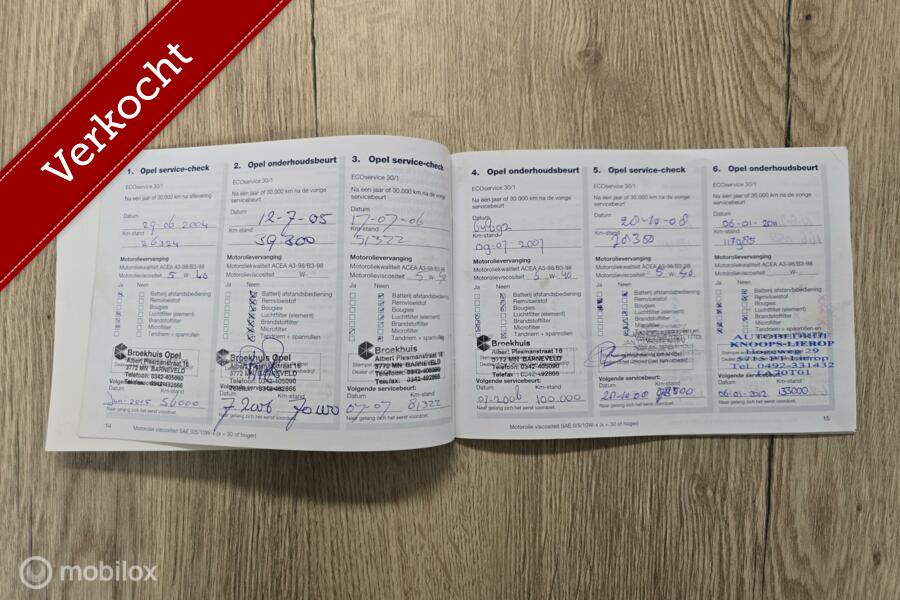 Verkocht
1. Opel service-check
ECOservice 30/1
Na een jaar of 30.000 km na aflevering
Datum
29-06 2004
Km-stand
26324
Motorolievervanging
Motoroliekwaliteit ACEA A3-98/B3-98
Motorolieviscositeit 5 W- 40
Ja Neen
Broekhuis Opel
Albert Plesmanstraat 16
3772 MN BARNEVELD
Telefoon: 0342-405090
Telefax: 0342-492866
Volgende servicebeurt:
56000
Naar gelang zich het eerst voordoet.
14
2. Opel onderhoudsbeurt
ECOservice 30/1
Na een jaar of 30.000 km na de vorige
servicebeurt
Datum
12-7-05
Km-stand
39.800
Motorolievervanging
Motoroliekwaliteit ACEA A3-98/B3-98
Motorolieviscositeit W-
Ja Neen
Batterij afstandsbediening
Remvloeistof
Bougies
Luchtfilter (element)
Brandstoffilter
Microfilter
Tandriem + spanrollen
Broekhuis Opel
Albert Plesmanstraat 16
3772 MN BARNEVELD
Telefoon: 0342-405090
Telefax: 0342-492866
Volgende servicebeurt:
7 2006 70 000
Naar gelang zich het eerst voordoet.
3. Opel service-check
ECOservice 30/1
Na een jaar of 30.000 km na de vorige
servicebeurt
Datum
17-07-06
Km-stand
51322
Motorolievervanging
Motoroliekwaliteit ACEA A3-98/B3-98
Motorolieviscositeit 5 W- 40
Ja Neen
Batterij afstandsbediening
Remvloeistof
Bougies
Luchtfilter (element)
Brandstoffilter
Microfilter
Tandriem + spanrollen
Broekhuis
Albert Plesmanstraat 16
3772 MN BARNEVELD
Telefoon: 0342-405090
Telefax: 0342-492866
Volgende servicebeurt:
07-07 81322
Naar gelang zich het eerst voordoet.
Motorolie viscositeit SAE 0/5/10W-x (x = 30 of hoger)
4. Opel onderhoudsbeurt
ECOservice 30/1
Na een jaar of 30.000 km na de vorige
servicebeurt
Datum
Km-stand
09-07-2007
Motorolievervanging
Motoroliekwaliteit ACEA A3-98/B3-98
Motorolieviscositeit 5 W- 40
Ja Neen
Batterij afstandsbediening
Remvloeistof
Bougies
Luchtfilter (element)
Brandstoffilter
Microfilter
Tandriem + spanrollen
Broekhuis
Albert Plesmanstraat 16
3772 MN BARNEVELD
Telefoon: 0342-405090
Telefax: 0342-492866
Volgende servicebeurt:
100.000
Naar gelang zich het eerst voordoet.
Motorolie viscositeit SAE 0/5/10W-x (x = 30 of hoger)
5. Opel service-check
ECOservice 30/1
Na een jaar of 30.000 km na de vorige
servicebeurt
Datum
20-10-08
Km-stand
Motorolievervanging
Motoroliekwaliteit ACEA A3-98/B3-98
Motorolieviscositeit 5 W- 40
Ja Neen
Batterij afstandsbediening
Remvloeistof
Bougies
Luchtfilter (element)
Brandstoffilter
Microfilter
Volgende servicebeurt:
Naar gelang zich het eerst voordoet.
6. Opel onderhoudsbeurt
ECOservice 30/1
Na een jaar of 30.000 km na de vorige
servicebeurt
Datum
06-01-2011
Km-stand
117985
Motorolievervanging
Motoroliekwaliteit ACEA A3-98/B3-98
Motorolieviscositeit W-
Ja Neen
Batterij afstandsbediening
Remvloeistof
Bougies
Luchtfilter (element)
Brandstoffilter
Microfilter
Tandriem + spanrollen
AUTOBEDRIJF
KNOOPS-LIEROP
Hogeweg 29
5715 PT Lierop
Tel. 0492-331432
Volgende servicebeurt:
06-01-2012 133000
Naar gelang zich het eerst voordoet.
15
mobilox